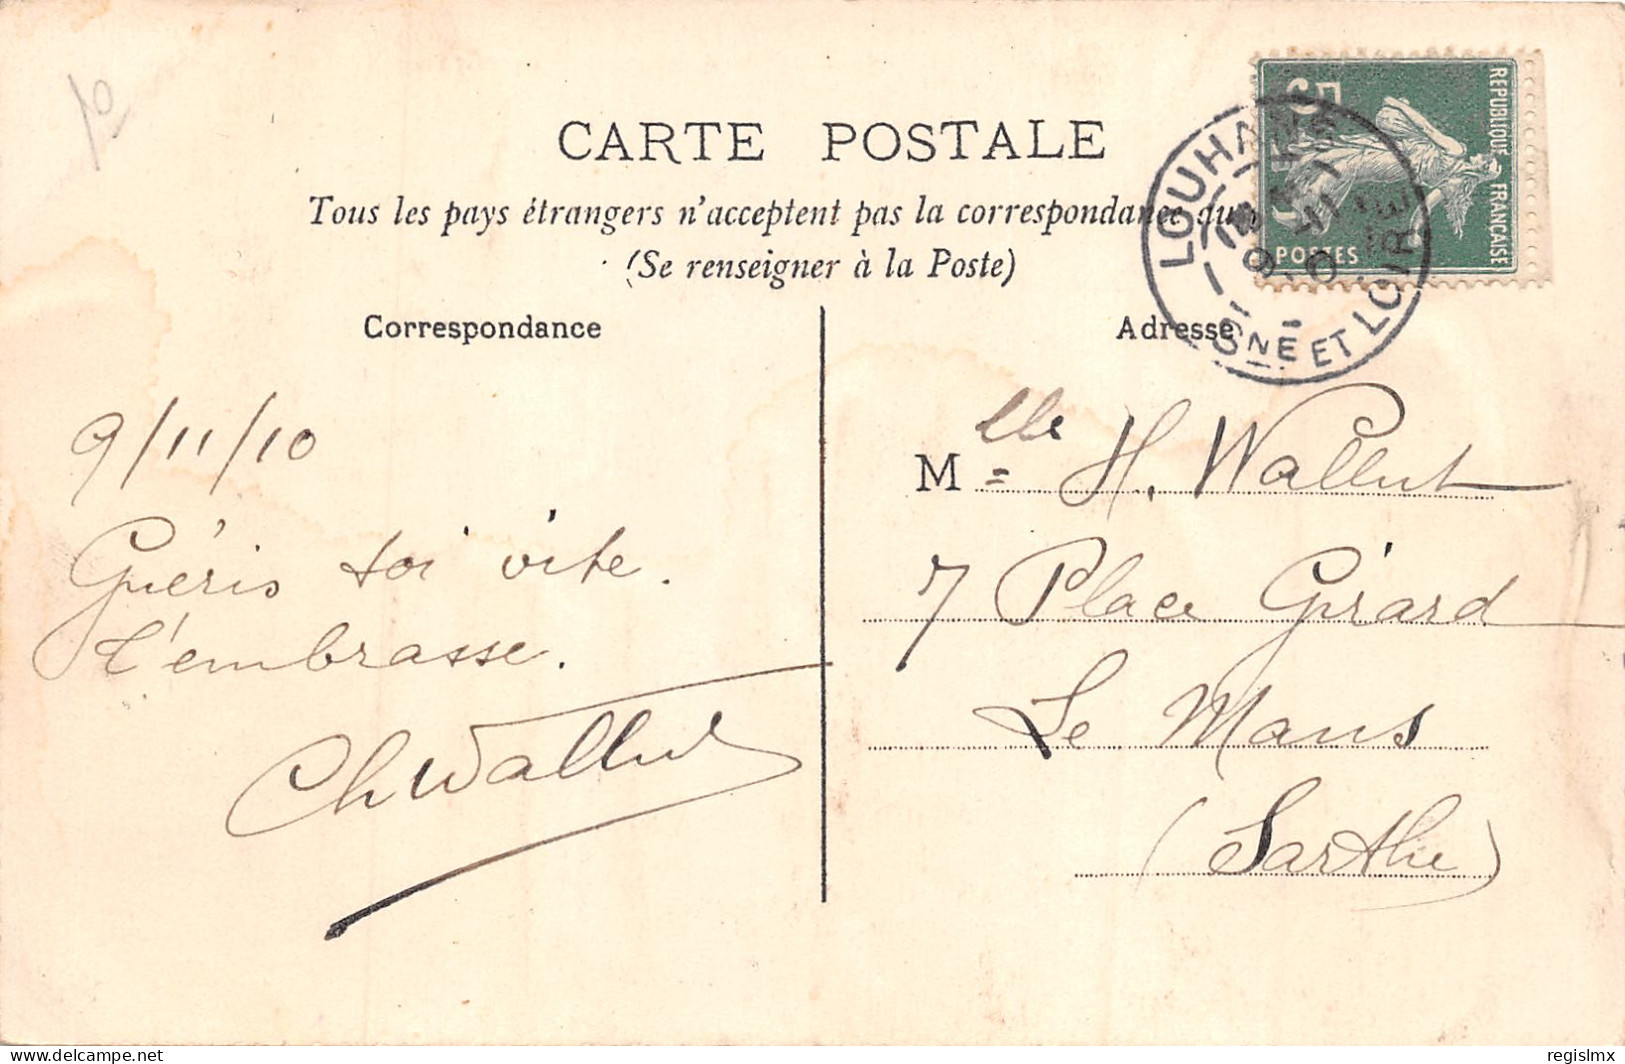 10
CARTE POSTALE
Tous les pays étrangers n'acceptent pas la correspondance au
(Se renseigner à la Poste)
Correspondance
Adresse
REPUBLIQUE FRANÇAISE
POSTES
5
LOUHANS
9 - 11
10
SNE ET LOIRE
9/11/10
Guéris toi vite.
t'embrasse.
Ch Wallut
Mlle H. Wallut
7 Place Girard
Le Mans
(Sarthe)
Delcampe.net
regislmx